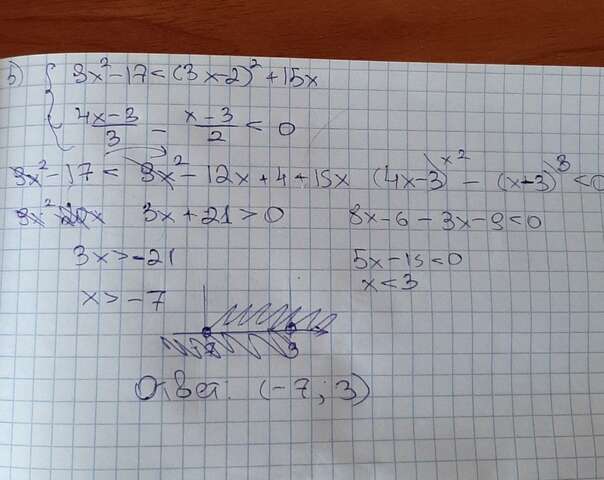 б) { 9x² - 17 < (3x - 2)² + 15x
(4x-3)/3 - (x-3)/2 < 0
9x² - 17 < 9x² - 12x + 4 + 15x (4x-3)ˣ² - (x-3)³ < 0
3x + 21 > 0 8x - 6 - 3x - 9 < 0
3x > -21 5x - 15 < 0
x > -7 x < 3
-7 3
Ответ: (-7; 3)